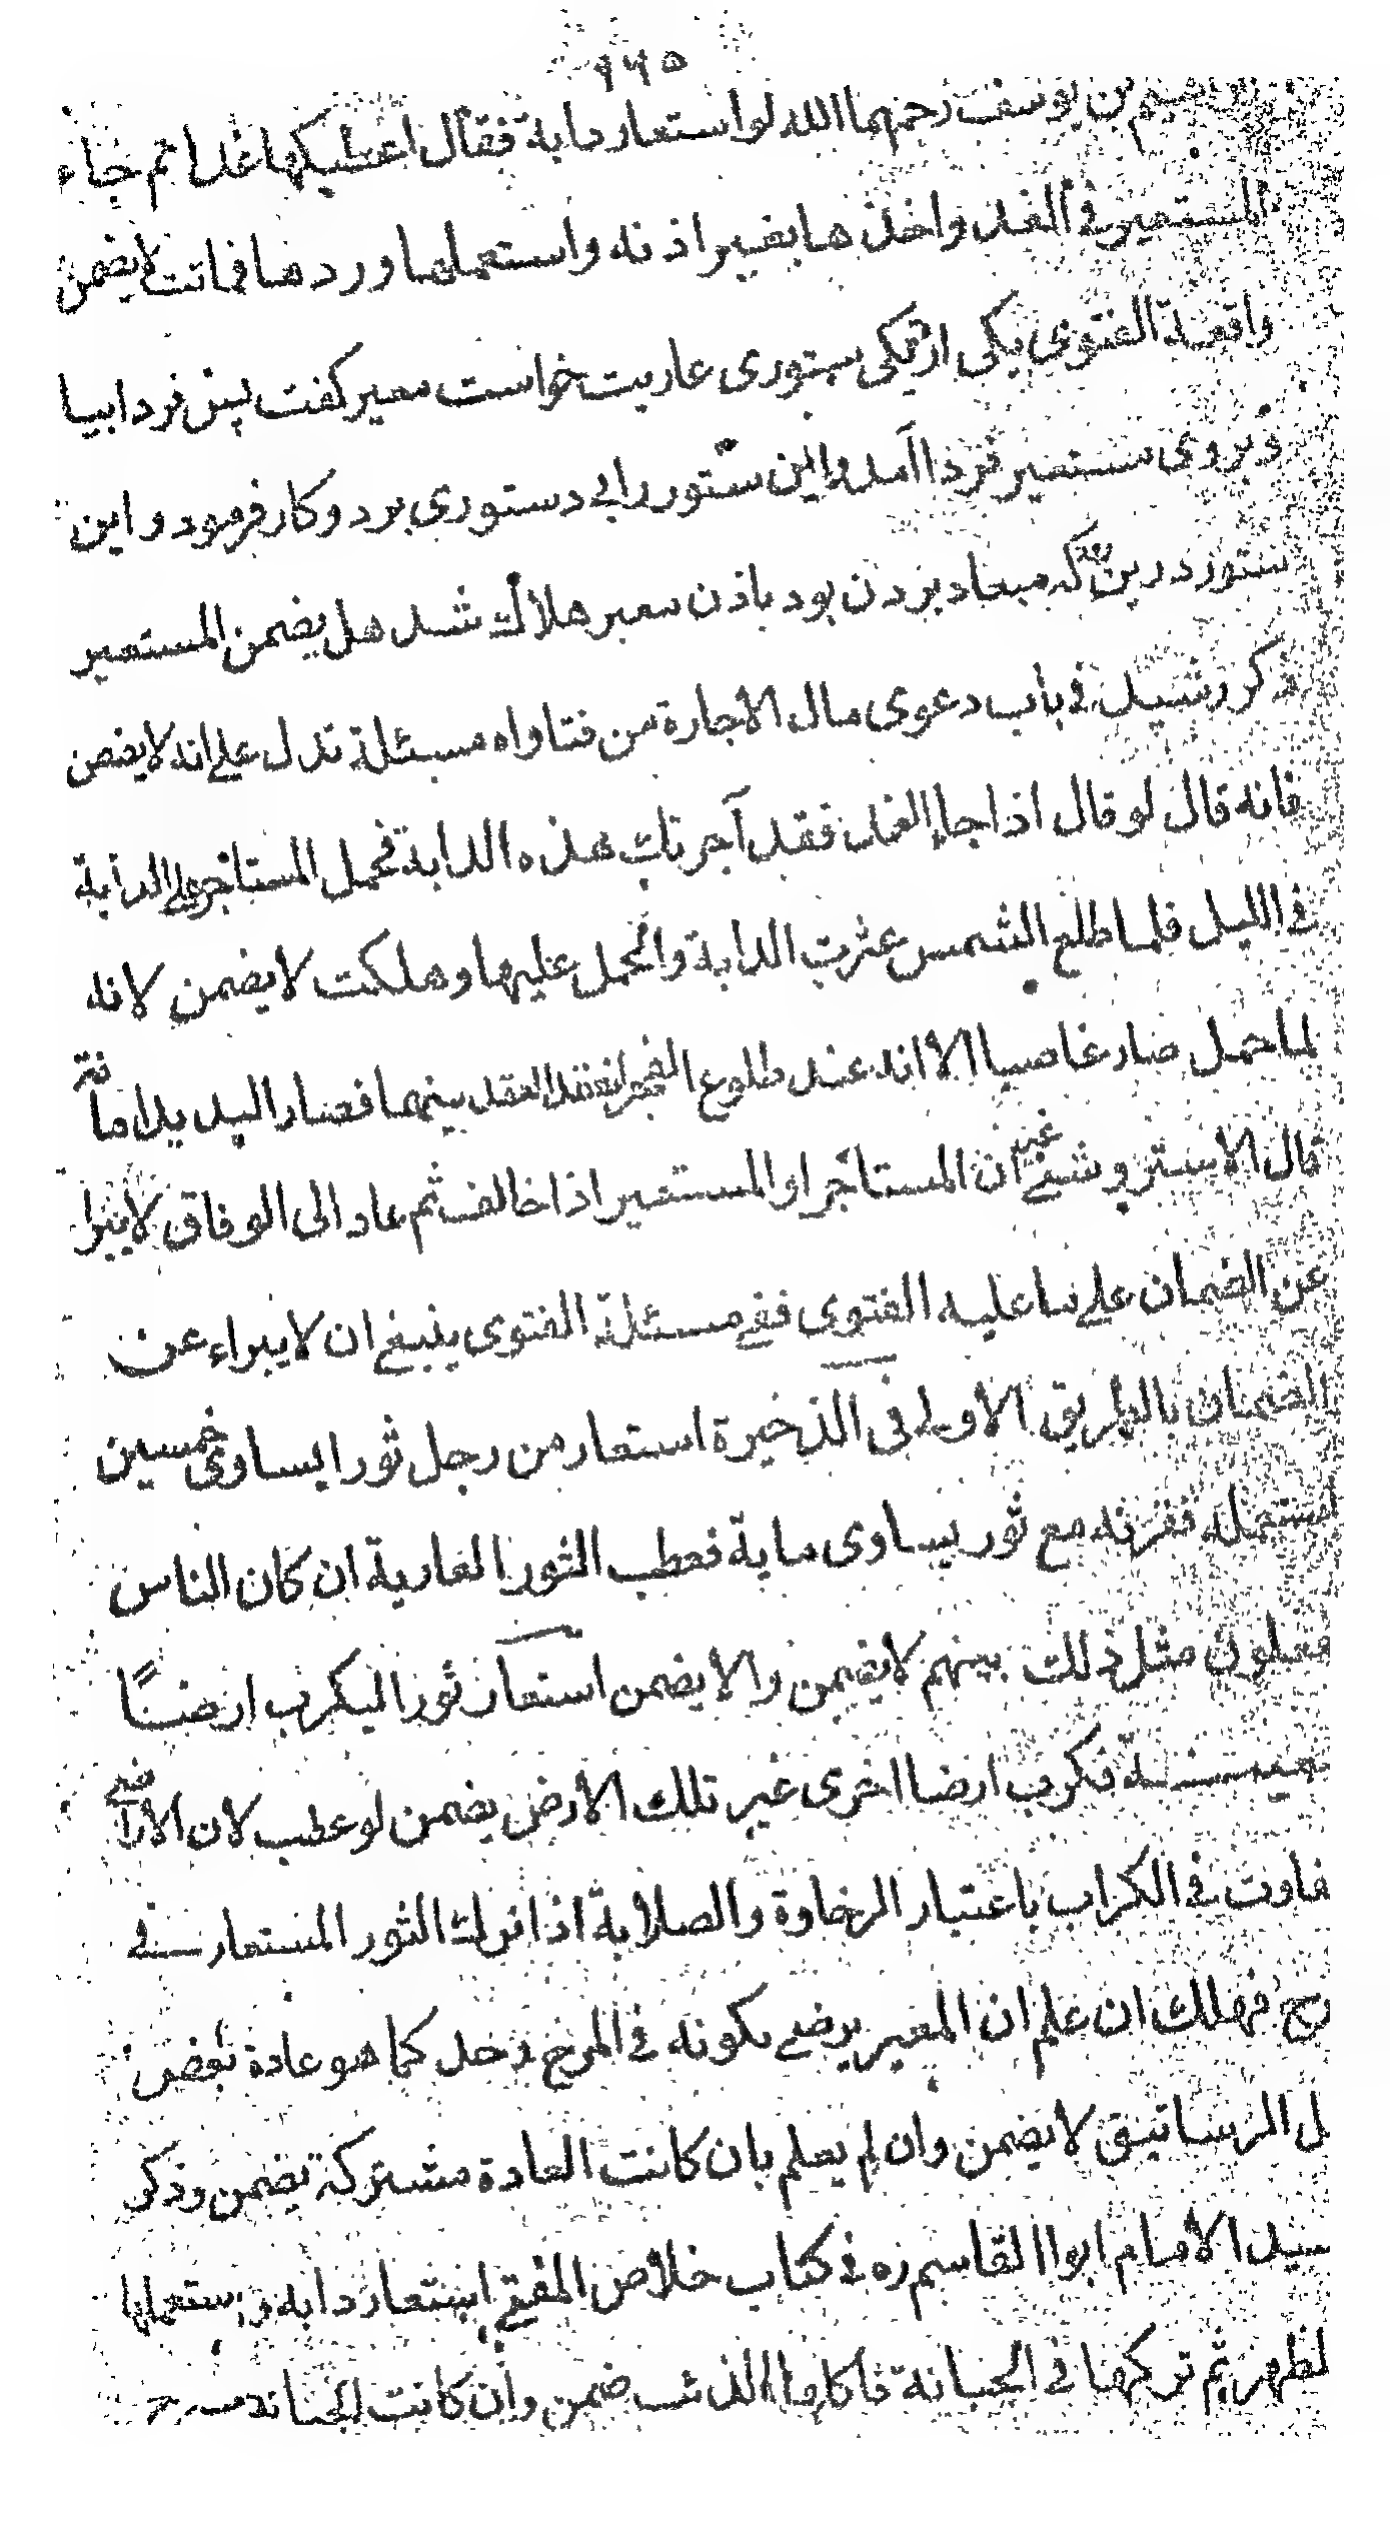 ٦٦٥
بن يوسف رحمهما الله لو استعار دابة فقال اعطيكها غدا ثم جاء
المستعير في الغد واخذها بغير اذنه واستعملها وردها فماتت لا يضمن
واقعة الفتوى يكى از يكى ستورى عاريت خواست معير كفت پس فردا بيا
وبروى مستعير فردا آمد واين ستور را بى دستورى برد وكار فرمود واين
ستور درين كه ميعاد بردن بود باذن معير هلاك شد هل يضمن المستعير
ذكر رشيد في باب دعوى مال الاجارة من فتاواه مسئلة تدل على انه لا يضمن
فانه قال لو قال اذا جاء الغد فقد آجرتك هذه الدابة فحمل المستاجر على الدابة
في الليل فلما طلع الشمس عثرت الدابة والحمل عليها وهلكت لا يضمن لانه
لما حمل صار غاصبا الا انه عند طلوع الفجر انعقد العقد بينهما فصار اليد يد امانة
قال الاستروشنى غير ان المستاجر او المستعير اذا خالف ثم عاد الى الوفاق لا يبرا
عن الضمان على ما عليه الفتوى ففى مسئلة الفتوى ينبغى ان لا يبراء عن
الضمان بالطريق الاولى فى الذخيرة استعار من رجل ثورا يساوى خمسين
ليستعمله فقرنه مع ثور يساوى ماية فعطب الثور العارية ان كان الناس
يفعلون مثل ذلك بينهم لا يضمن والا يضمن استعار ثورا ليكرب ارضا
معينة فكرب ارضا اخرى غير تلك الارض يضمن لو عطب لان الاراضى
تفاوت فى الكراب باعتبار الرخاوة والصلابة اذا ترك الثور المستعار فى
المرج فهلك ان علم ان المعير يرضى بكونه فى المرج وحده كما هو عادة بعض
اهل الرساتيق لا يضمن وان لم يعلم بان كانت العادة مشتركة يضمن وذكر
سيد الامام ابوا القاسم ره فى كتاب خلاص المفتى استعار دابة واستعملها
لظهر ثم تركها فى الجبانة فاكلها الذئب ضمن وان كانت الجبانة